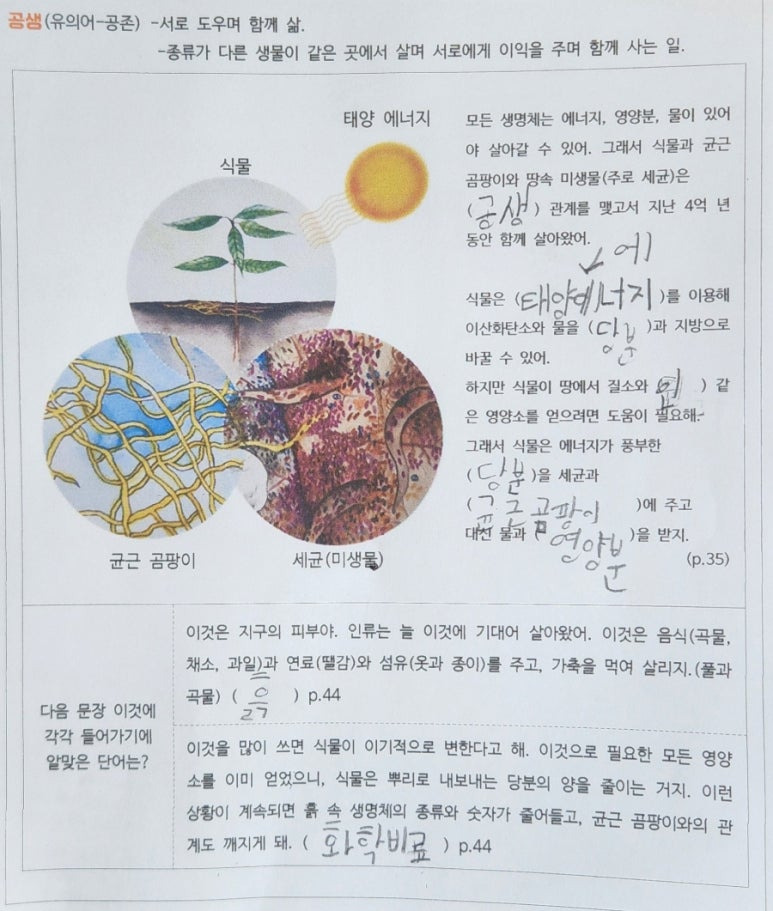 공생(유의어-공존) -서로 도우며 함께 삶.
-종류가 다른 생물이 같은 곳에서 살며 서로에게 이익을 주며 함께 사는 일.
태양 에너지
식물
균근 곰팡이
세균(미생물)
모든 생명체는 에너지, 영양분, 물이 있어
야 살아갈 수 있어. 그래서 식물과 균근
곰팡이와 땅속 미생물(주로 세균)은
(공생) 관계를 맺고서 지난 4억 년
동안 함께 살아왔어.
에
식물은 (태양에너지)를 이용해
이산화탄소와 물을 (당분)과 지방으로
바꿀 수 있어.
하지만 식물이 땅에서 질소와 인 ) 같
은 영양소를 얻으려면 도움이 필요해.
그래서 식물은 에너지가 풍부한
(당분)을 세균과
(균근곰팡이 )에 주고
대신 물과 (영양분)을 받지.
(p.35)
다음 문장 이것에
각각 들어가기에
알맞은 단어는?
이것은 지구의 피부야. 인류는 늘 이것에 기대어 살아왔어. 이것은 음식(곡물,
채소, 과일)과 연료(땔감)와 섬유(옷과 종이)를 주고, 가축을 먹여 살리지.(풀과
곡물) ( 흙 ) p.44
이것을 많이 쓰면 식물이 이기적으로 변한다고 해. 이것으로 필요한 모든 영양
소를 이미 얻었으니, 식물은 뿌리로 내보내는 당분의 양을 줄이는 거지. 이런
상황이 계속되면 흙 속 생명체의 종류와 숫자가 줄어들고, 균근 곰팡이와의 관
계도 깨지게 돼. ( 화학비료 ) p.44